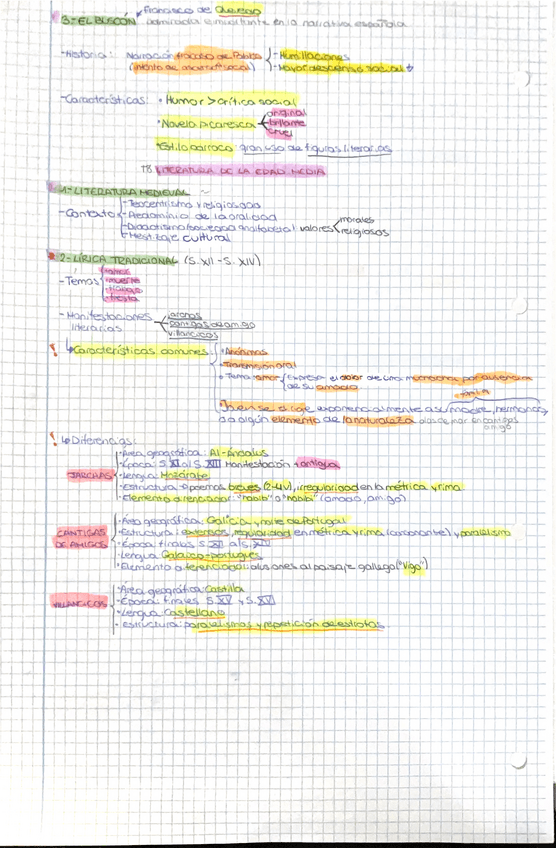 Francisco de Quevedo
3-EL BUSCÓN admirada e importante en la narrativa española
-Historia: Narración fracaso de Pablos - Humillaciones
(intento de ascenso social) - Mayor descenso social
-Características: • Humor > crítica social
original
• Novela picaresca brillante
cruel
• Estilo barroco: gran uso de figuras literarias
T8. LITERATURA DE LA EDAD MEDIA
1-LITERATURA MEDIEVAL
- Teocentrismo y religiosidad
-Contexto - Predominio de la oralidad
- Didactismo valores morales
religiosos
- Mestizaje cultural
2-LÍRICA TRADICIONAL (S. XII - S. XIV)
amor
-Temas muerte
trabajo
fiesta
-Manifestaciones jarchas
literarias cantigas de amigo
villancicos
! Características comunes: • Anónimas
• Transmisión oral
• Tema: amor Expresa el dolor de una por ausencia
de su amado
que se dirige exponencialmente a su madre, hermanas
o a algún elemento de la naturaleza en cantigas
amigo
! Diferencias:
- Área geográfica: Al-Ándalus
- Época: S. XI al S. XIII Manifestación + antigua
JARCHAS - Lengua Mozárabe
- Estructura: poemas breves (2-4v), irregularidad en la métrica y rima
- Elemento a rencadar: "habib" o "habibi" (amado, amigo)
- Área geográfica: Galicia y norte de Portugal
CANTIGAS - Estructura: regularidad en métrica y rima (asonante) y paralelismo
DE AMIGOS - Época: finales S. XII al S.
- Lengua Galaico-portugués
- Elemento a rerencial: alusiones al paisaje gallego ("Vigo")
- Área geográfica: Castilla
VILLANCICOS - Época: finales S. XV y S. XVI
- Lengua: Castellano
- Estructura: paralelismos y repetición de estrofas